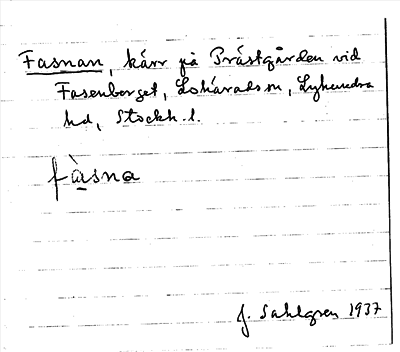 Fasnan, kärr på Prästgården vid
Fasenberget, Lohärads sn, Lyhundra
hd, Stockh. l.
fàsna
J. Sahlgren 1937